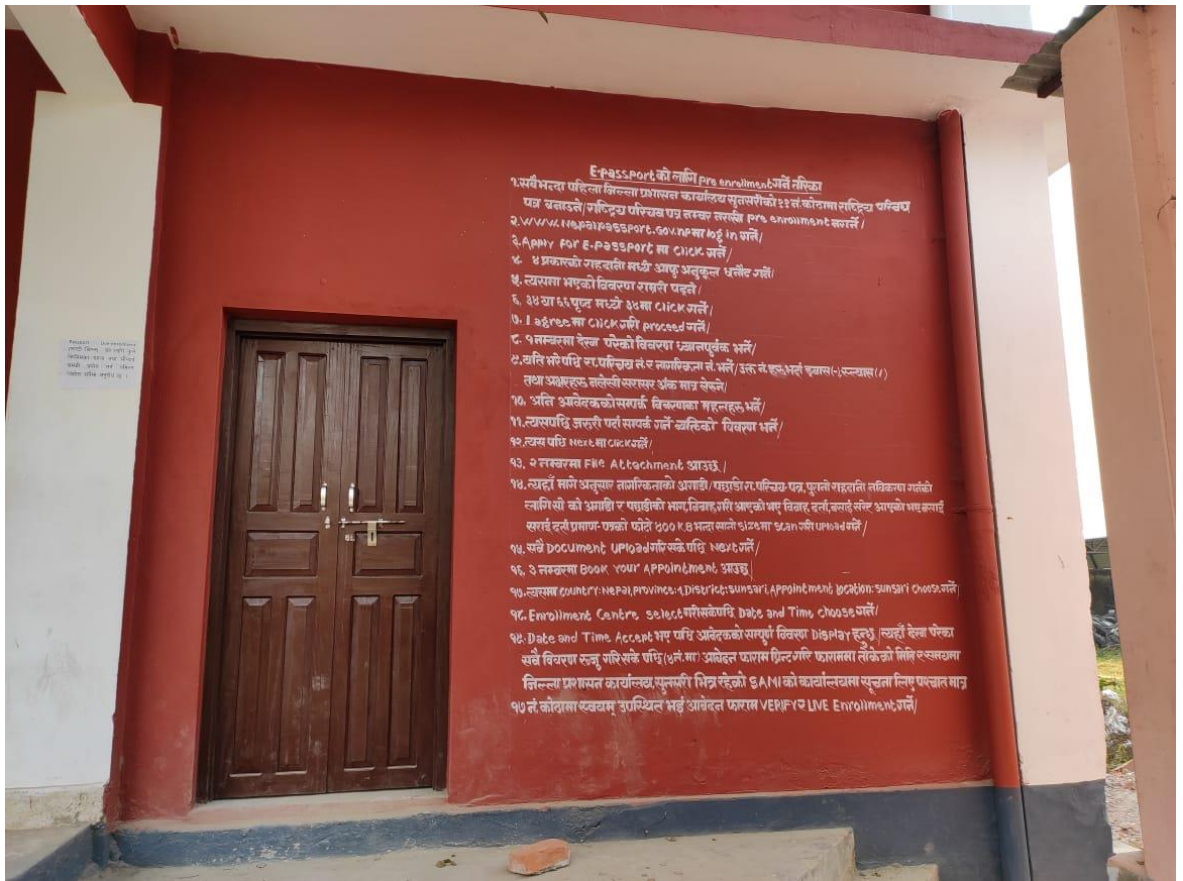 E-Passport को लागि Pre enrollment गर्ने तरिका
१. सबैभन्दा पहिला जिल्ला प्रशासन कार्यालय सुनसरीको ११ नं. कोठामा राष्ट्रिय परिचय
पत्र बनाउने/राष्ट्रिय परिचय पत्र नम्बर नराखी Pre enrollment नगर्ने/
२. www.Nepalpassport.gov.np मा log in गर्ने/
३. Apply For E-Passport मा Click गर्ने/
४. ४ प्रकारको राहदानी मध्ये आफु अनुकूल छनौट गर्ने/
५. त्यसमा भएको विवरण राम्ररी पढ्ने/
६. ३४ वा ६६ पृष्ट मध्ये ३४मा Click गर्ने/
७. I agree मा Click गरी Proceed गर्ने/
८. १ नम्बरमा देख्न परेको विवरण ध्यानपूर्वक भर्ने/
९. यति भरेपछि रा.परिचय नं. र नागरिकता नं. भर्ने/उक्त नं. हरु भर्दा ड्यास(-) स्ल्यास(/)
तथा अक्षरहरु नलेखी सरासर अंक मात्र लेख्ने/
१०. अनि आवेदकको सम्पर्क विवरणका महलहरु भर्ने/
११. त्यसपछि जरुरी पर्दा सम्पर्क गर्ने व्यक्तिको विवरण भर्ने/
१२. त्यस पछि Next मा Click गर्ने/
१३. २ नम्बरमा File Attachment आउछ/
१४. त्यहाँ मागे अनुसार नागरिकताको अगाडी/पछाडी रा.परिचय पत्र, पुरानो राहदानी नविकरण गर्नको
लागि सो को अगाडी र पछाडीको भाग, विवाह गरी आएको भए विवाह दर्ता, बसाई सरेर आएको भए बसाई
सराई दर्ता प्रमाण-पत्रको फोटो ५०० KB भन्दा सानो Size मा Scan गरी Upload गर्ने/
१५. सबै Document Upload गरिसके पछि Next गर्ने/
१६. ३ नम्बरमा Book Your Appointment आउछ/
१७. त्यसमा Country: Nepal, Province: 1, District: Sunsari, Appointment Location: Sunsari Choose गर्ने/
१८. Enrollment Centre Select गरीसकेपछि Date and Time Choose गर्ने/
१९. Date and Time Accept भए पछि आवेदकको सम्पुर्ण विवरण Display हुन्छ/त्यहाँ देखा परेका
सबै विवरण रुजु गरिसके पछि (४नं.मा) आवेदन फाराम प्रिन्ट गरि फाराममा तोकेको मिति र समयमा
जिल्ला प्रशासन कार्यालय, सुनसरी भित्र रहेको SAMI को कार्यालयमा सूचना लिए पश्चात मात्र
१७ नं. कोठामा स्वयम् उपस्थित भई आवेदन फाराम VERIFY र LIVE Enrollment गर्ने/